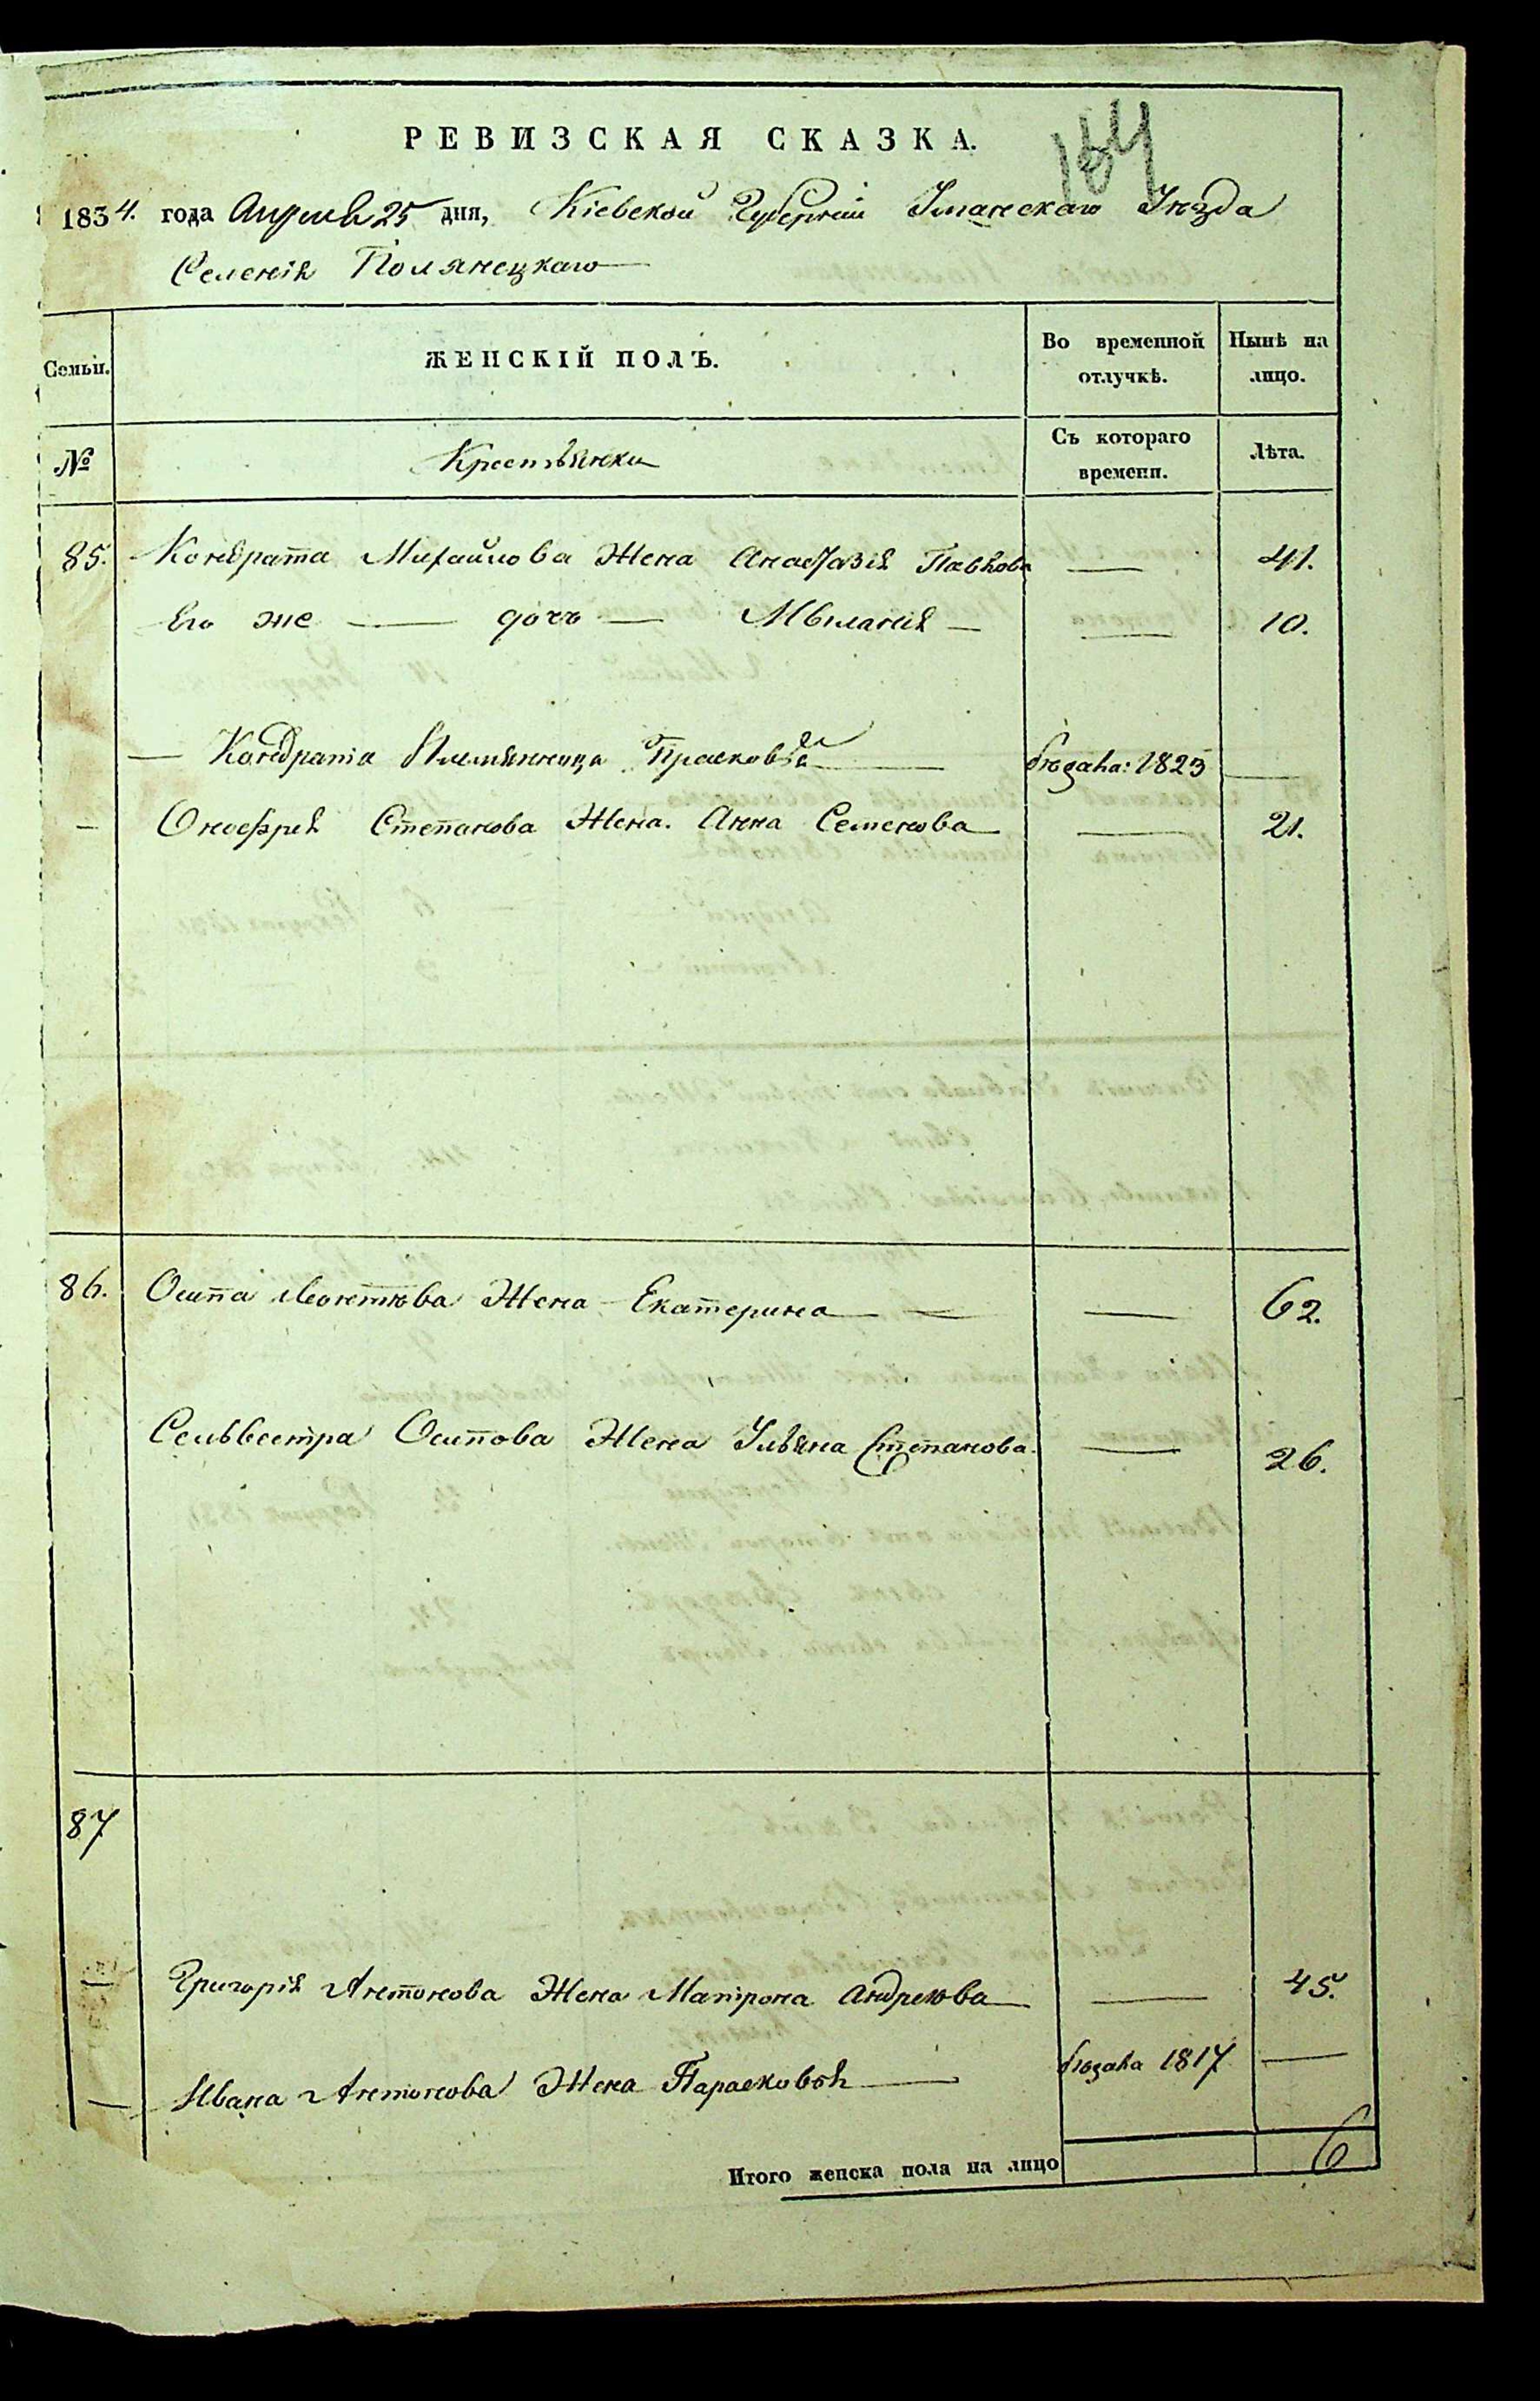 164
РЕВИЗСКАЯ СКАЗКА.
1834. года Апреля 25 дня, Кіевской Губерніи Уманскаго Уѣзда
Селенія Полянецкаго
Семьи. ЖЕНСКІЙ ПОЛЪ. Во временной отлучкѣ. Нынѣ на лицо.
№ Крестьянки Съ котораго времени. Лѣта.
85. Кондрата Михайлова Жена Анастазія Павлова — 41.
Его же — дочь — Мѣланія — — 10.
— Кондрата Племянница Прасковья — 1823 —
— Онофрея Степанова Жена. Анна Семенова — 21.
86. Осипа Леонтюва Жена Екатерина — — 62.
Сельвестра Осипова Жена Ульяна Степанова. — 26.
87
— Григорія Антонова Жена Матрона Андреюва — 45.
— Ивана Антонова Жена Парасковія — 1817 —
Итого женска пола на лицо 6